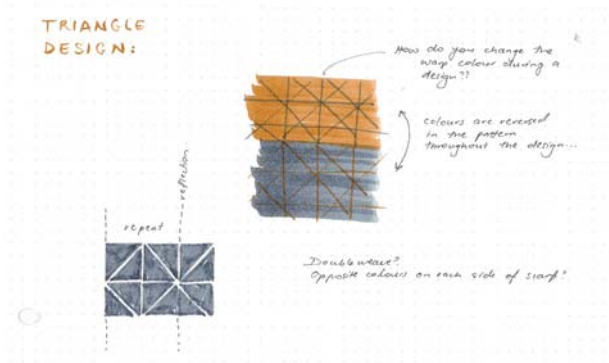 TRIANGLE
DESIGN:
How do you change the
warp colour during a
design??
colours are reversed
in the pattern
throughout the design...
reflection
repeat
Doubleweave?
Opposite colours on each side of scarf?